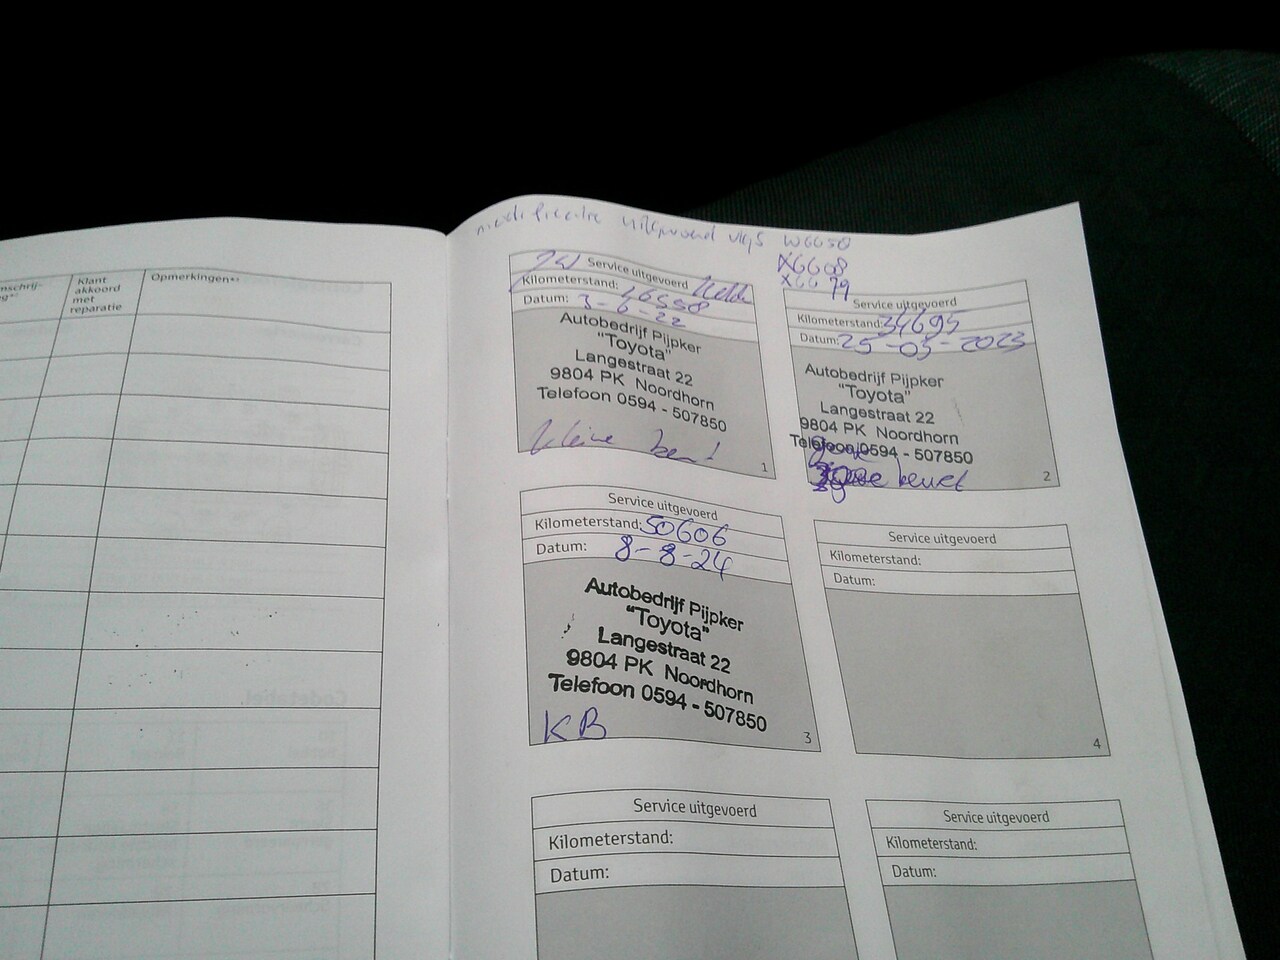 Klant
akkoord
met
reparatie
Opmerkingen
uitgevoerd W6650
X6608
X6679
Service uitgevoerd
Kilometerstand:
Datum: 3-6-22
Autobedrijf Pijpker
"Toyota"
Langestraat 22
9804 PK Noordhorn
Telefoon 0594 - 507850
kleine
1
Service uitgevoerd
Kilometerstand: 34695
Datum: 25-05-2023
Autobedrijf Pijpker
"Toyota"
Langestraat 22
9804 PK Noordhorn
Telefoon 0594 - 507850
2
Service uitgevoerd
Kilometerstand: 50606
Datum: 8-8-24
Autobedrijf Pijpker
"Toyota"
Langestraat 22
9804 PK Noordhorn
Telefoon 0594 - 507850
KB
3
Service uitgevoerd
Kilometerstand:
Datum:
4
Service uitgevoerd
Kilometerstand:
Datum:
Service uitgevoerd
Kilometerstand:
Datum: